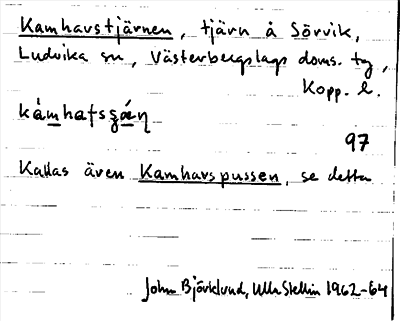 Kamhavstjärnen, tjärn å Sörvik,
Ludvika sn, Västerbergslags doms. tg,
Kopp. l.
kámhafsʒǽŋ
97
Kallas även Kamhavspussen, se detta
John Björklund, Ulla Stellin 1962-64